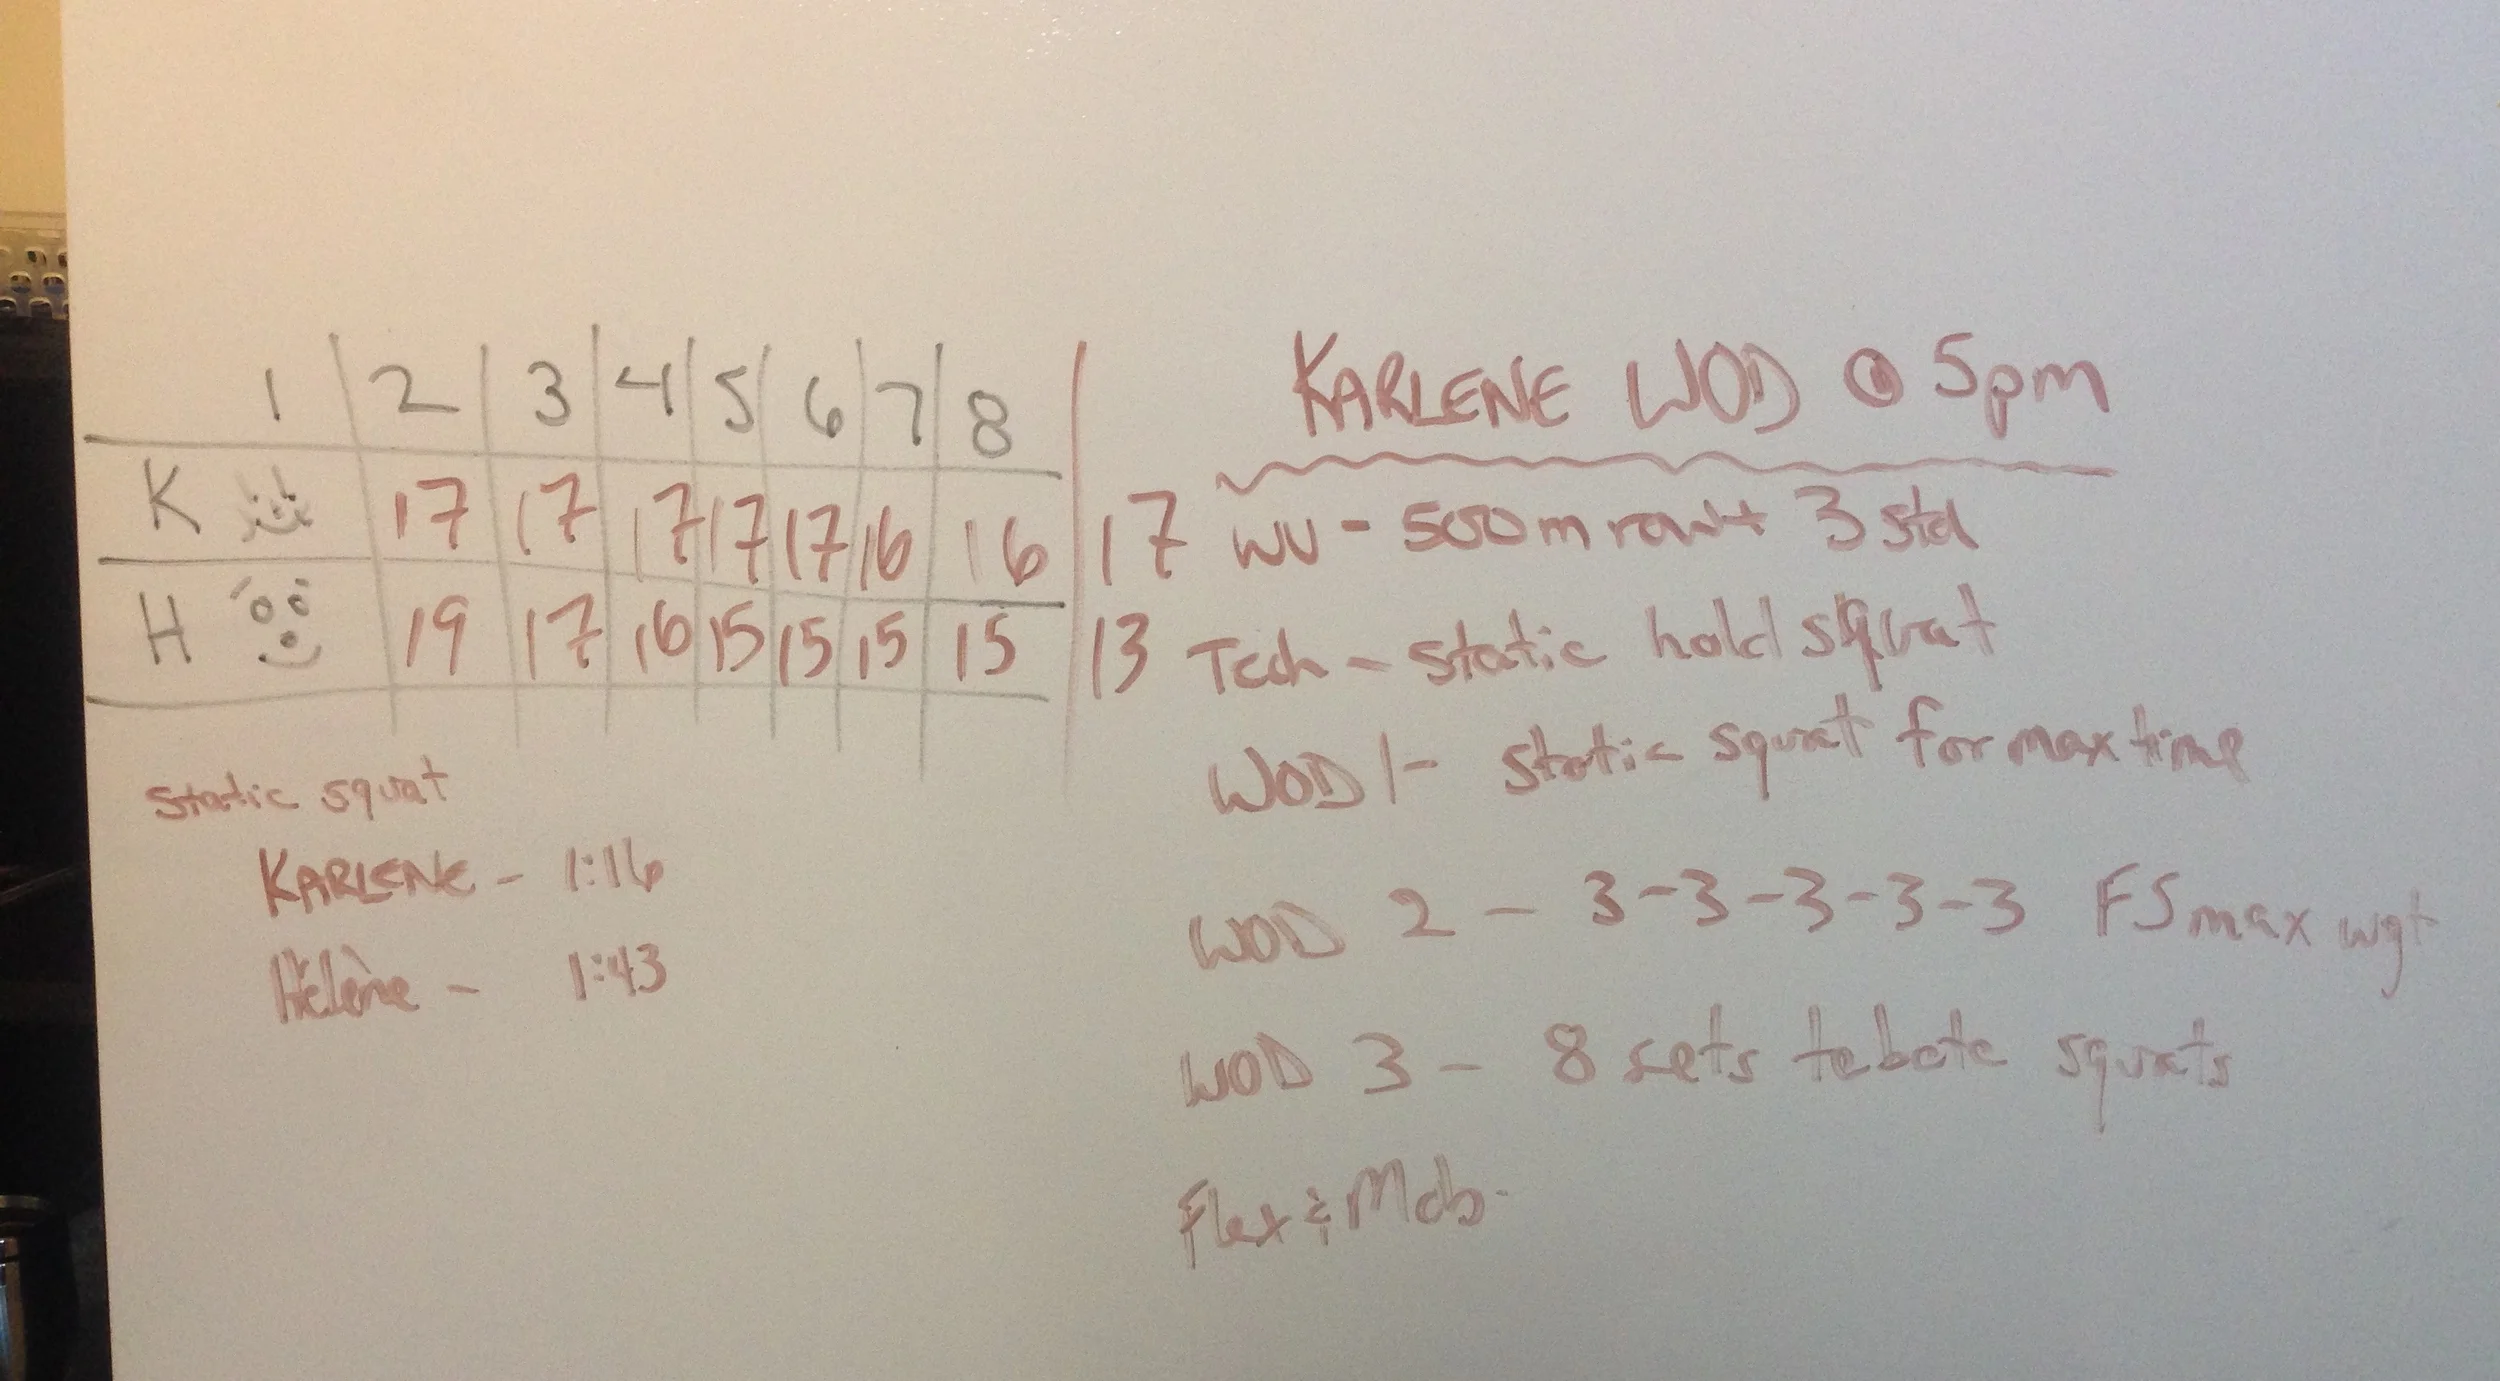 1 2 3 4 5 6 7 8
K 17 17 17 17 17 16 16 17
H 19 17 16 15 15 15 15 13
Static squat
KARLENE - 1:16
Hélène - 1:43
KARLENE WOD @ 5pm
WU - 500m row + 3 std
Tech - static hold squat
WOD 1 - static squat for max time
WOD 2 - 3-3-3-3-3 FS max wgt
WOD 3 - 8 sets tabata squats
Flex & Mob.